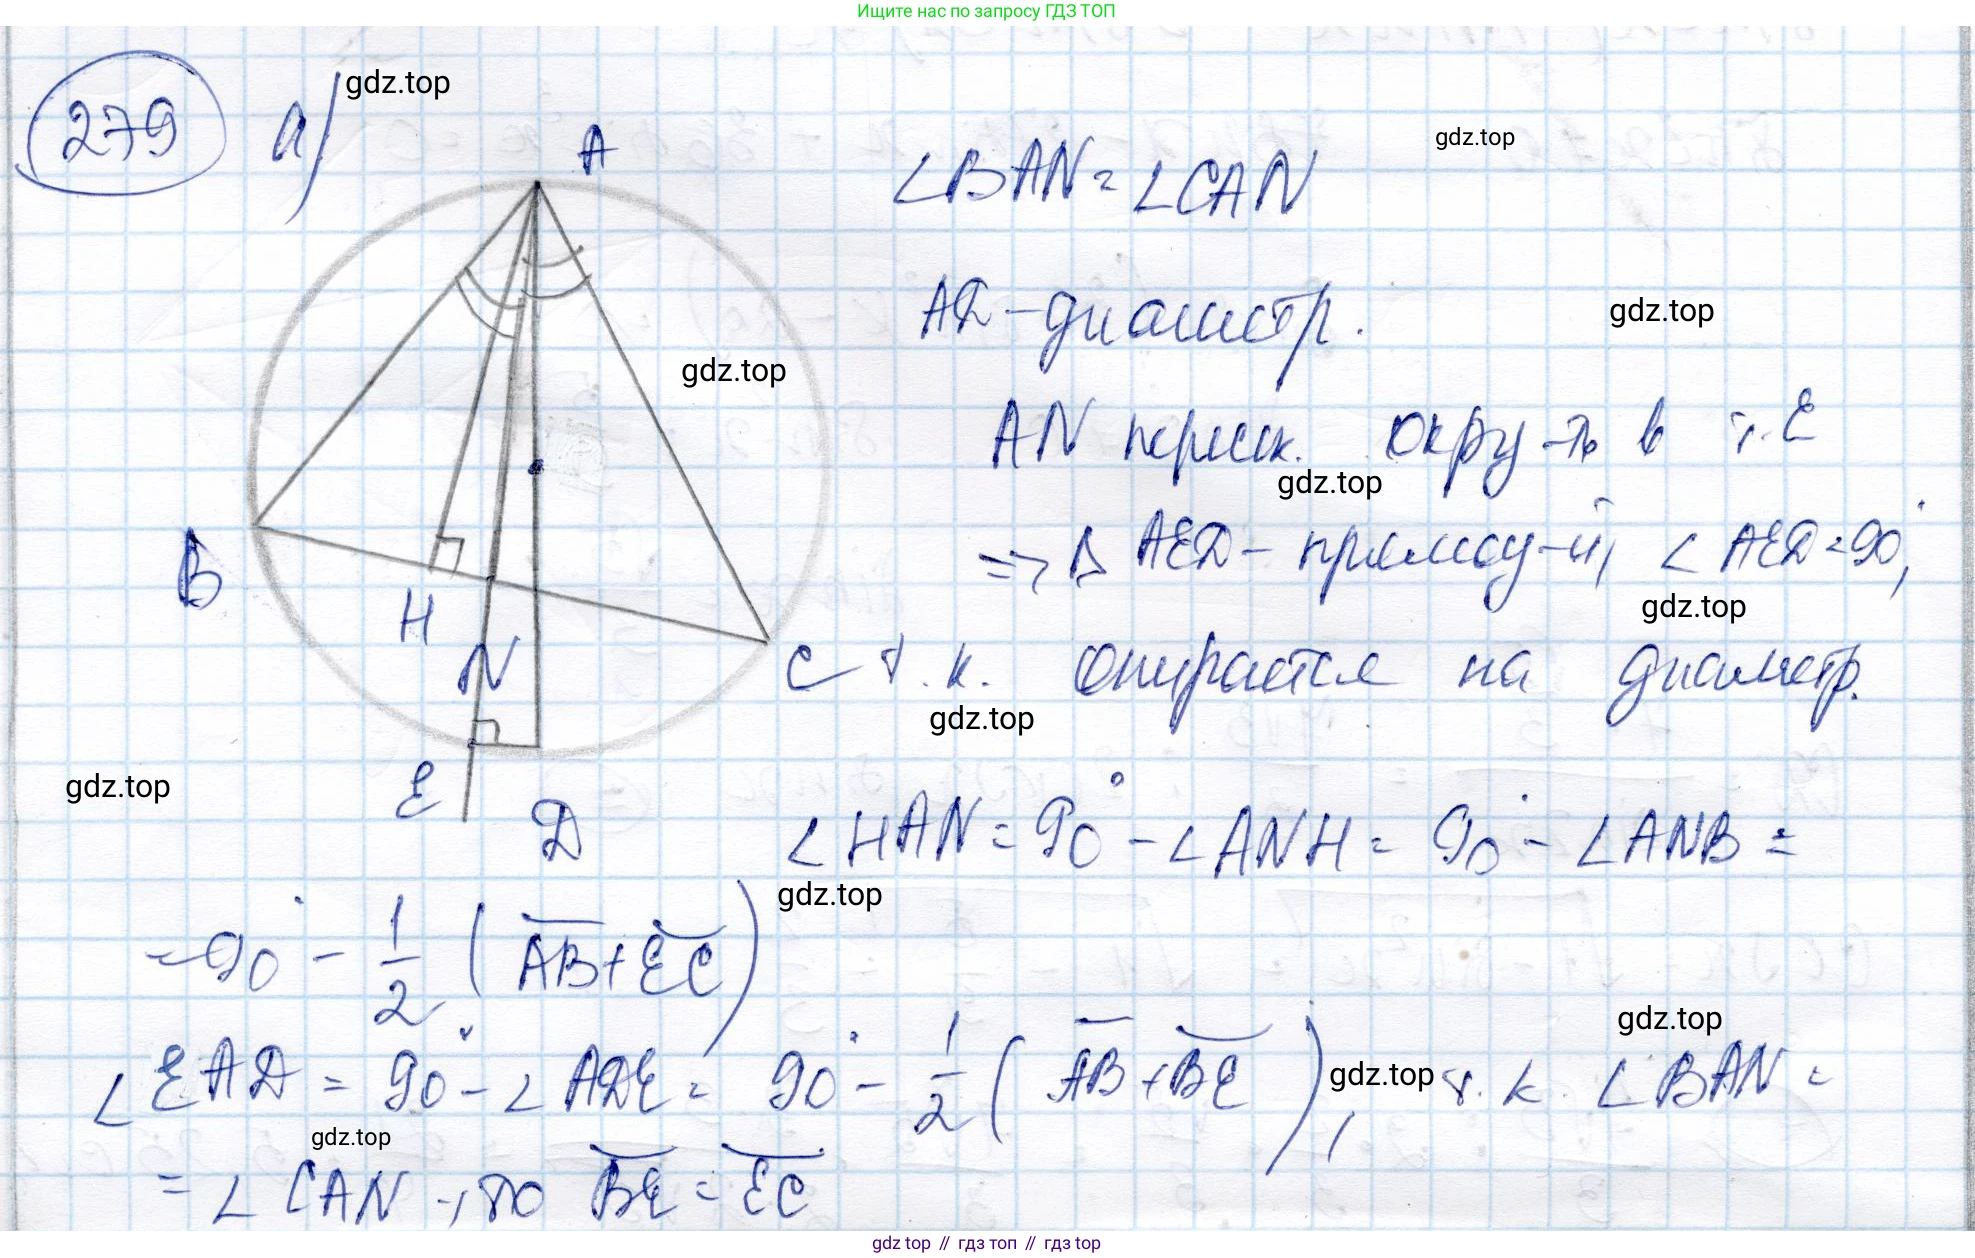 Ищите нас по запросу ГДЗ ТОП
279 а) gdz.top
A
gdz.top
∠BAN = ∠CAN
AD - диаметр.
gdz.top
gdz.top
AN пересек. окру-ть в т. E
gdz.top
=> Δ AED - прямоу-й, ∠AED = 90°,
gdz.top
B
H
N
C
т.к. опирается на диаметр.
gdz.top
gdz.top
E
D
∠HAN = 90° - ∠ANH = 90° - ∠ANB =
gdz.top
= 90° - 1/2 (AB + EC)
gdz.top
∠EAD = 90° - ∠ADE = 90° - 1/2 (AB + BE), gdz.top т.к. ∠BAN =
gdz.top
= ∠CAN, то BE = EC
gdz top // гдз топ // гдз top